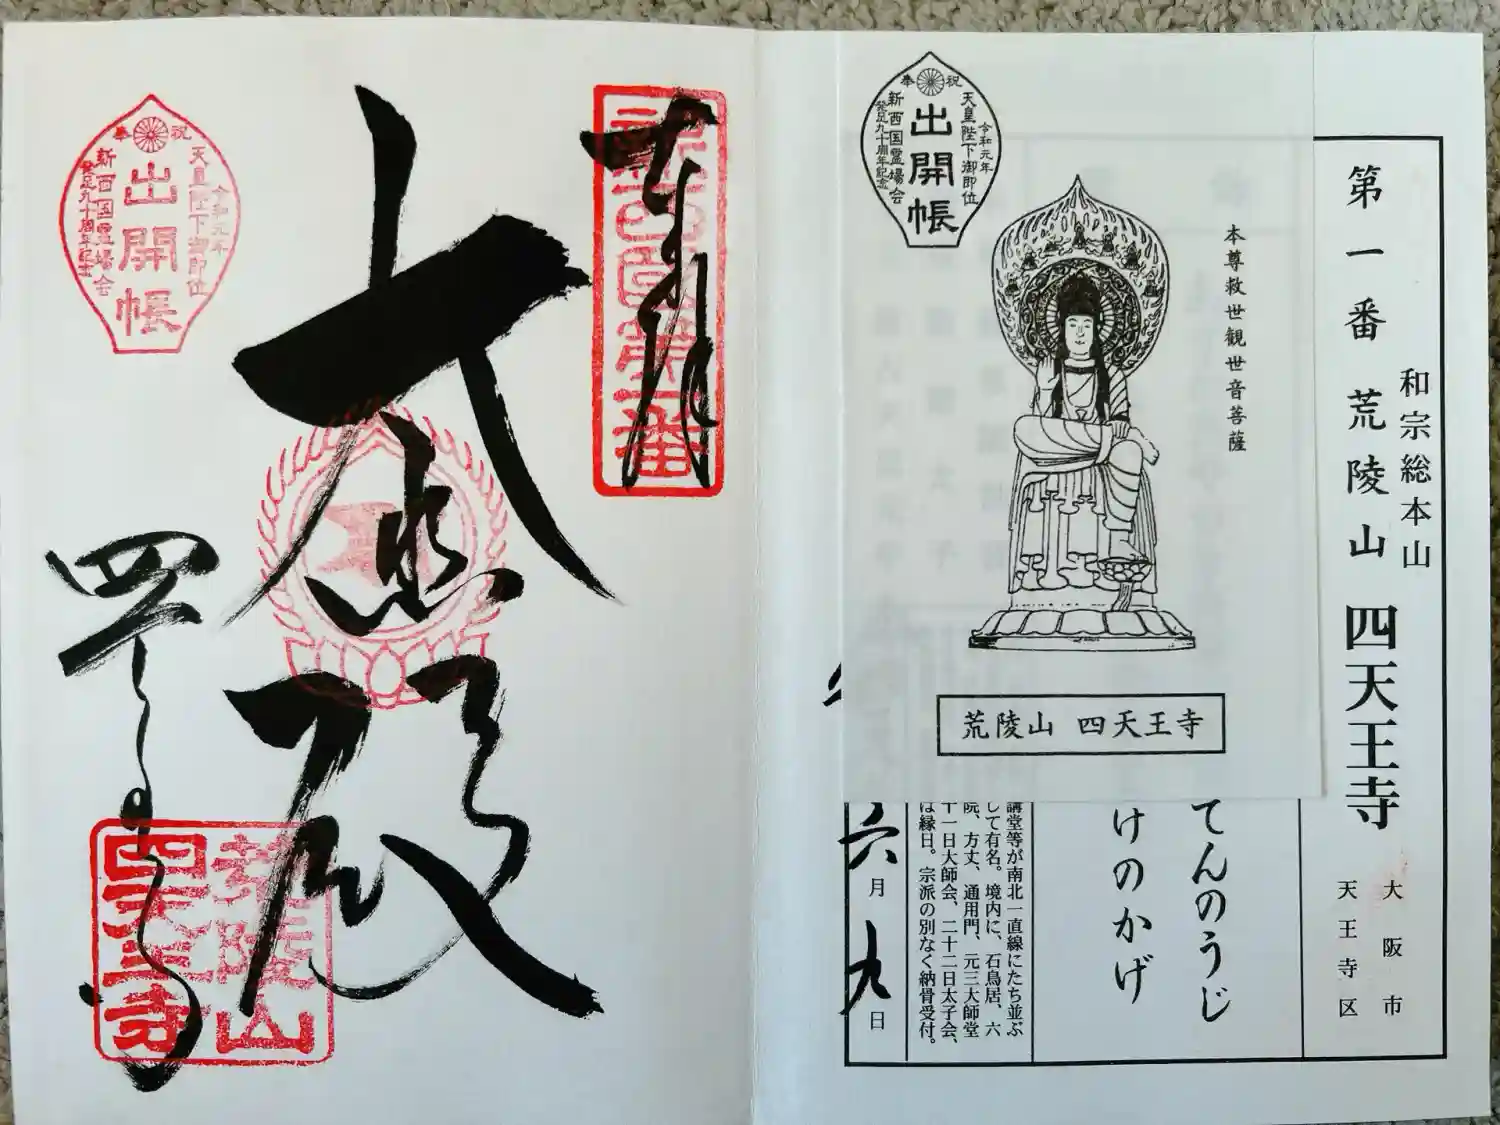 和宗総本山
第一番 荒陵山 四天王寺
大阪市
天王寺区
本尊救世観世音菩薩
荒陵山 四天王寺
祝
奉
令和元年
天皇陛下御即位
出開帳
新西国霊場会
発足九十周年記念
てんのうじ
けのかげ
講堂等が南北一直線にたち並ぶ
して有名。境内に、石鳥居、六
院、方丈、通用門、元三大師堂
十一日大師会、二十二日太子会、
は縁日。宗派の別なく納骨受付。
六月九日
奉拝
新西国第一番
大悲殿
四天王寺
荒陵山
四天王寺
祝
奉
令和元年
天皇陛下御即位
出開帳
新西国霊場会
発足九十周年記念